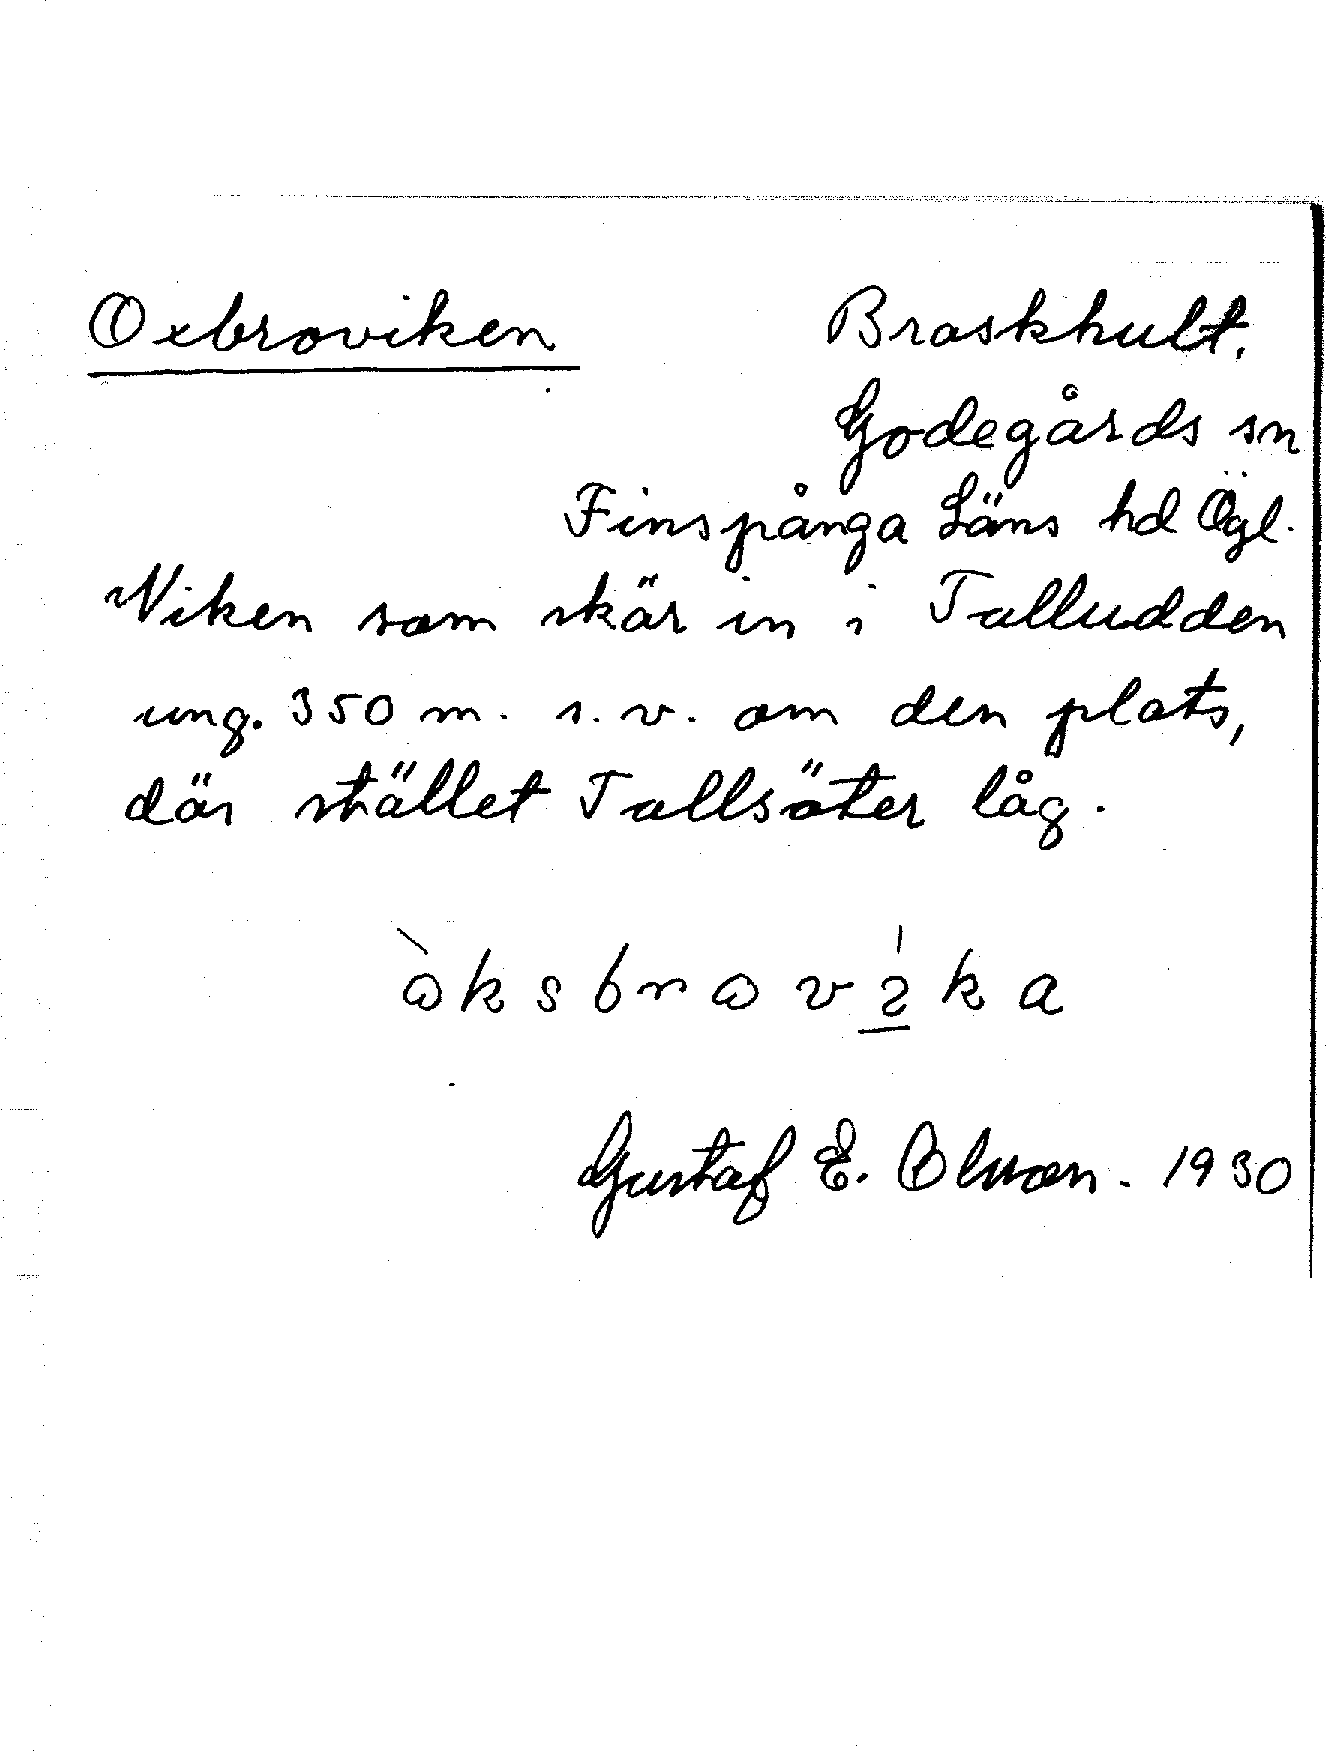 Oxbroviken
Braskhult.
Godegårds sn
Finspånga Läns hd Ögl.
Viken som skär in i Talludden
ung. 350 m. s.v. om den plats,
där stället Tallsäter låg.
Gustaf E. Olsson. 1930